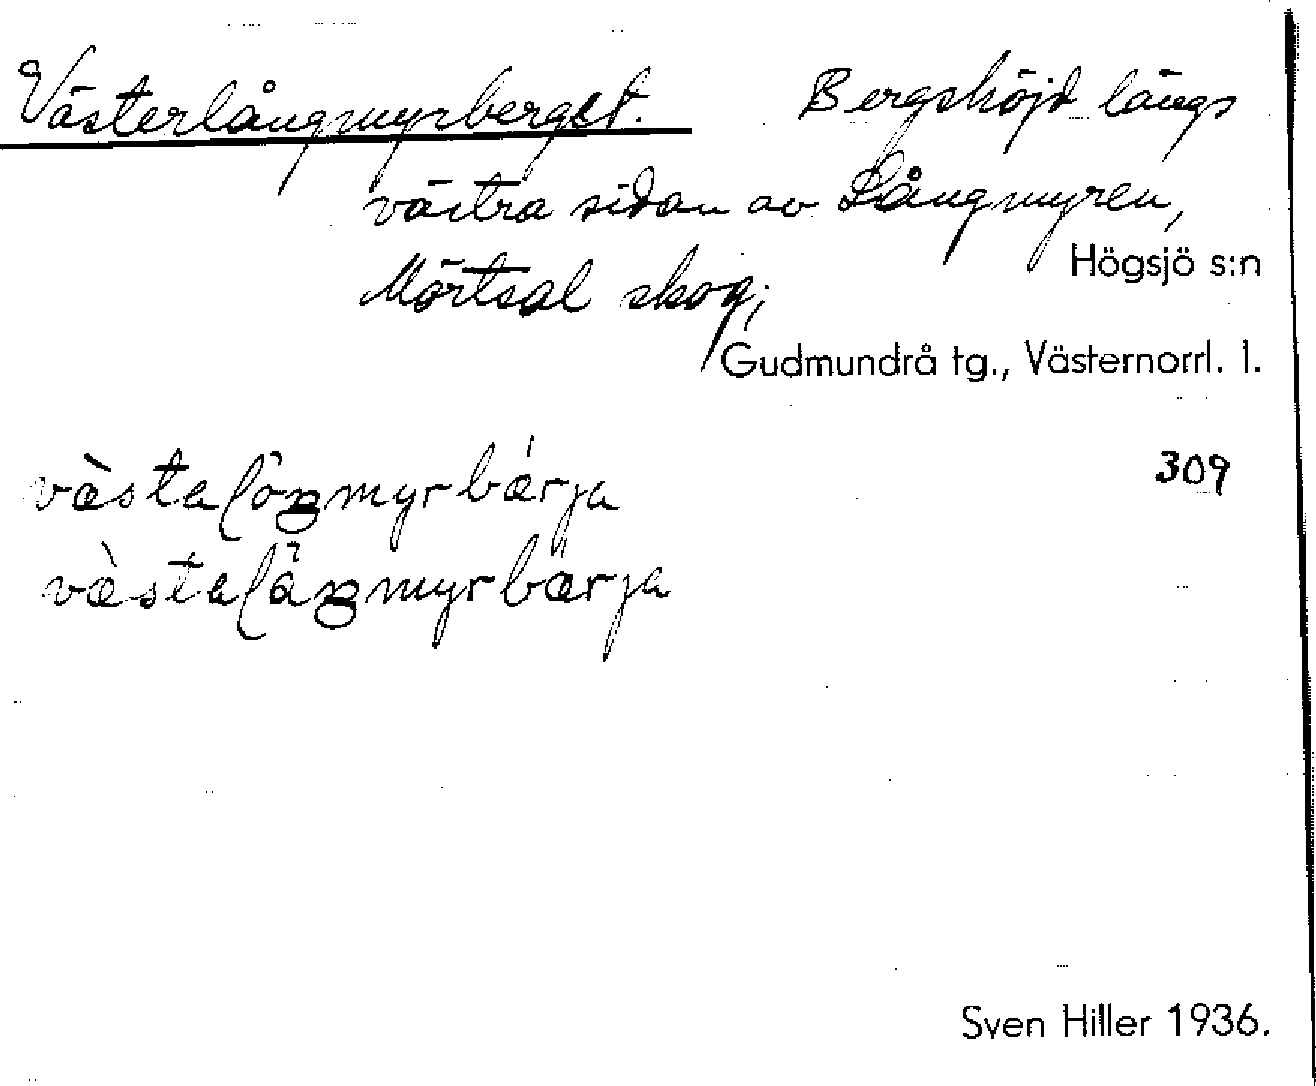 Västerlångmyrberget. Bergshöjd längs
västra sidan av Långmyren,
Högsjö s:n
Mörtsal skog;
Gudmundrå tg., Västernorrl. l.
309
Sven Hiller 1936.